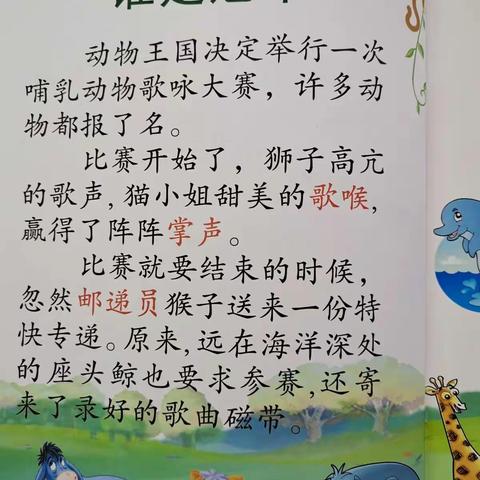 动物王国决定举行一次
哺乳动物歌咏大赛，许多动
物都报了名。
比赛开始了，狮子高亢
的歌声,猫小姐甜美的歌喉,
赢得了阵阵掌声。
比赛就要结束的时候,
忽然邮递员猴子送来一份特
快专递。原来,远在海洋深处
的座头鲸也要求参赛,还寄
来了录好的歌曲磁带。